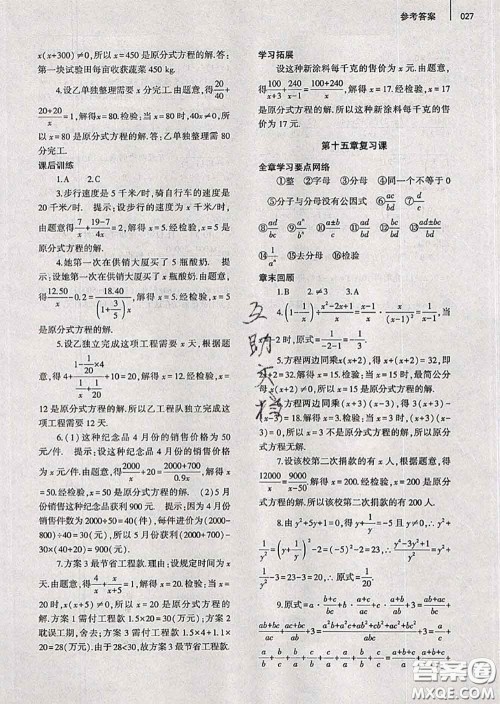 参考答案 027
x(x+300)≠0,所以x=450是原分式方程的解.答:
第一块试验田每亩收获蔬菜450 kg.
4.设乙单独整理需要x分完工.由题意,得20/40+
(20+20)/x=1.解得x=80.检验,当x=80时,40x≠0,所
以x=80是原分式方程的解.答:乙单独整理需要80
分完工.
课后训练
1.A 2.C
3.步行速度是5千米/时,骑自行车的速度是
20千米/时. 提示:设步行的速度为x千米/时,
由题意得7/x+(19-7)/4x=2,解得x=5.经检验,x=5是
原分式方程的解.
4.她第一次在供销大厦买了5瓶酸奶. 提
示:设她第一次在供销大厦买了x瓶酸奶.由题意,得
12.50/x-0.2=18.40/((1+3/5)x),解得x=5.经检验,x=5
是原分式方程的解.
5.设乙独立完成这项工程需要x天,根据题意,
得4·1/20+(1-1/20×4)/(1/20+1/x)+10=20.解得x=12.经检验,x=
12是原分式方程的解.所以乙工程队独立完成这
项工程需要12天.
6.(1)这种纪念品4月份的销售价格为50
元/件. 提示:设这种纪念品4月份的销售价格为
x元/件.由题意,得2000/x=(2000+700)/0.9x-20,解得x
=50.经检验,x=50是原分式方程的解. (2)5月
份销售这种纪念品获利900元. 提示:4月份的
销售件数为2000÷50=40(件),每件进价为(2000-
800)÷40=30(元),所以5月份获利2000+700-
30×(40+20)=900(元).
7.方案3最节省工程款.理由:设规定时间为x
天.由题意,得4/x+x/(x+5)=1,解得x=20.经检验,当x=
20时,x(x+5)≠0,所以x=20是原分式方程的
解.方案1需付工程款1.5×20=30(万元).方案2
耽误工期,舍去;方案3需付工程款1.5×4+1.1×
20=28(万元).由于28<30,故方案3最节省工程款.
学习拓展
设这种新涂料每千克的售价为x元.由题意,
得100/(x+3)+240/(x-1)=(100+240)/x,解得x=17.经检验,x=
17是原分式方程的解.所以这种新涂料每千克的
售价为17元.
第十五章复习课
全章学习要点网络
①整 ②字母 ③分母 ④同一个不等于0
⑤分子与分母没有公因式 ⑥ac/bd ⑦d/c
⑧ad/bc ⑨a^n/b^n ⑩(a±b)/c ⑪ad/bd ⑫bc/bd ⑬(ad±bc)/bd
⑭1/a^n ⑮去分母 ⑯检验
章末回顾
1.B 2.≠3 3.A
4.(1-1/x)÷(x²-2x+1)/x=(x-1)/x·x/(x-1)²=1/(x-1),当
-2时,原式=1/(-2-1)=-1/3.
5.方程两边同乘x(x+2),得(x+2)+x(x+2)=32,即
+2=32.解得x=15.检验,当x=15时,最简公分
母x(x+2)≠0,所以x=15是原分式方程的解.
6.方程两边同乘(x+3)(x-3),得3(x+3)-
(x-3)=18.解得x=3.检验,当x=3时,(x+3)(x-3)
=0,所以x=3不是原分式方程的解,原方程无解.
7.设该校第二次捐款的有x人,根据题意,得
12000/x=9000/(x-50),解得x=200.经检验,x=200是原分
式方程的解.所以该校第二次捐款的有200人.
互助文档
答案圈
MXQE.COM